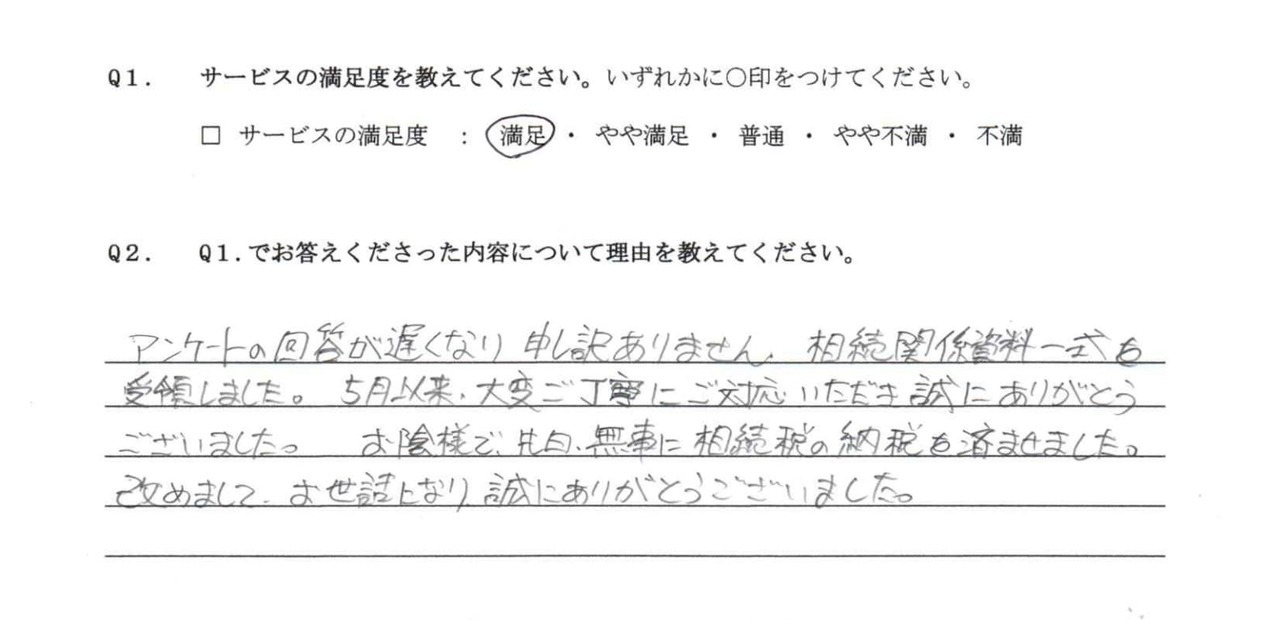 Q1. サービスの満足度を教えてください。いずれかに○印をつけてください。
□ サービスの満足度 : 満足 ・ やや満足 ・ 普通 ・ やや不満 ・ 不満
Q2. Q1.でお答えくださった内容について理由を教えてください。
アンケートの回答が遅くなり 申し訳ありません。 相続関係資料一式を
受領しました。 5月以来、大変ご丁寧にご対応いただき誠にありがとう
ございました。 お陰様で、先日、無事に相続税の納税も済ませました。
改めまして、お世話になり、誠にありがとうございました。